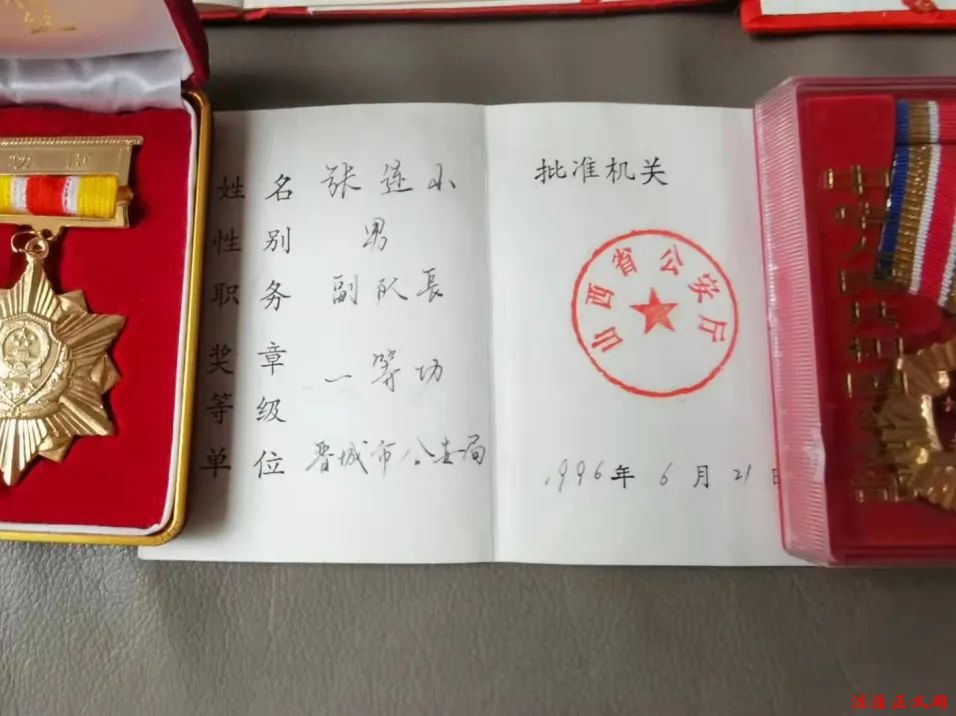 姓名 张连小
性别 男
职务 副队长
奖章等级 一等功
单位 晋城市公安局
批准机关
山西省公安厅
1996年6月21日
法治正义网